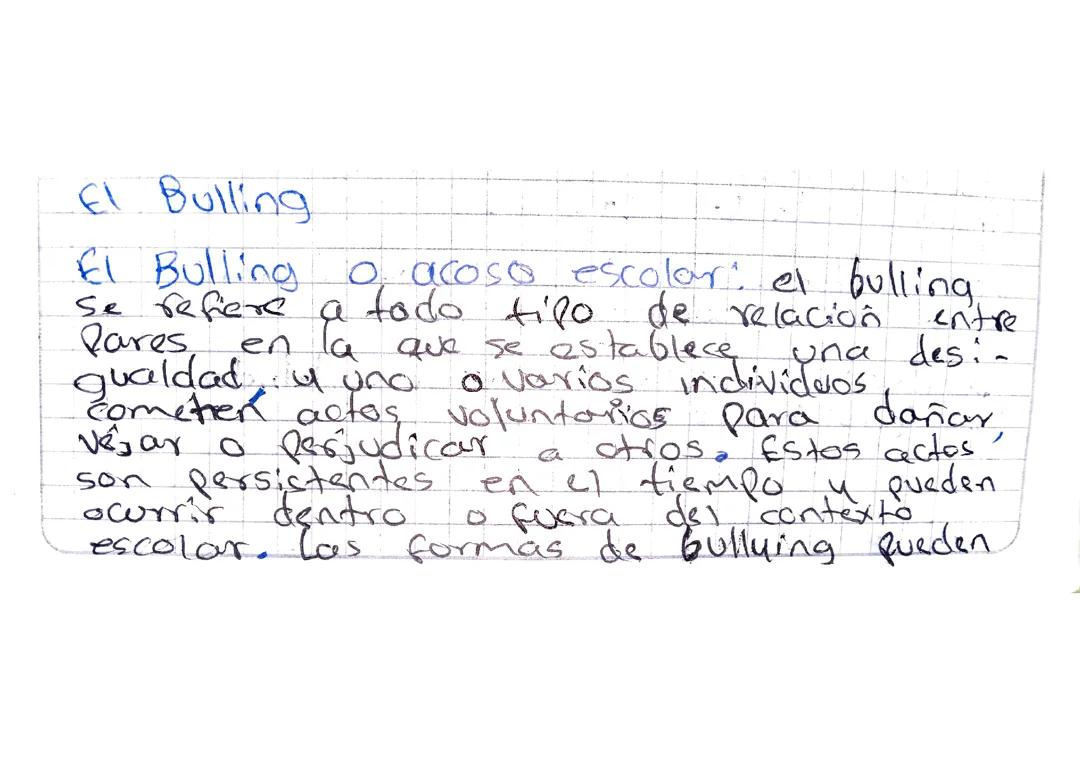 El Bulling
El Bulling o acoso escolar: el bulling
se refiere a todo tipo de relación entre
Pares en la que se establece una desi-
gualdad y uno o varios individuos
cometen actos voluntarios para dañar,
vejar o perjudicar a otros. Estos actos
son persistentes en el tiempo y pueden
ocurrir dentro o fuera del contexto
escolar. Las formas de bullying pueden